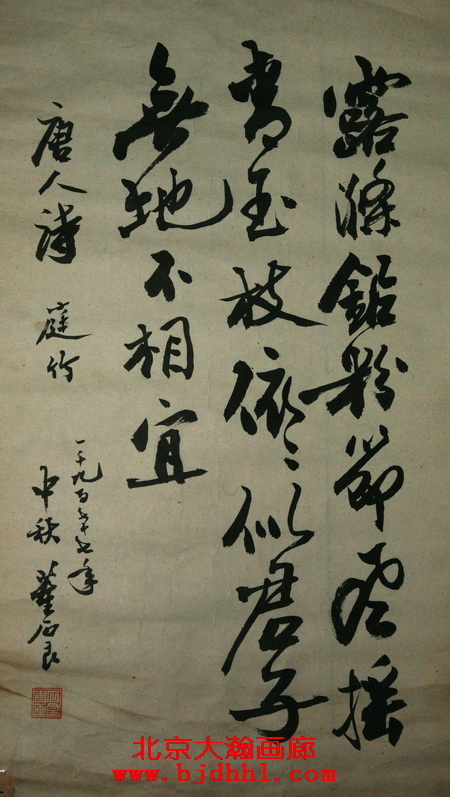 露滌鉛粉節風摇
青玉枝依〻似君子
無地不相宜
唐人詩 庭竹
一千九百七十七年
中秋 董石良
北京大瀚画廊
www.bjdhhl.com